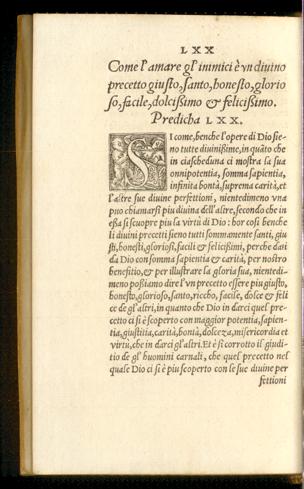 LXX
Come l'amare gl'inimici è vn diuino
precetto giusto, santo, honesto, glorio
so, facile, dolcißimo & felicißimo.
Predicha LXX.
SI come, benche l'opere di Dio sie-
no tutte diuinißime, in quãto che
in ciascheduna ci mostra la sua
onnipotentia, somma sapientia,
infinita bontà, suprema carità, et
l'altre sue diuine perfettioni, nientedimeno vna
puo chiamarsi piu diuina dell'altre, secondo che in
essa si scuopre piu la virtù di Dio: hor cosi benche
li diuini precetti sieno tutti sommamente santi, giu
sti, honesti, gloriosi, facili & felicißimi, perche dati
da Dio con somma sapientia & carità, per nostro
benefitio, & per illustrare la gloria sua, nientedi-
meno poßiamo dire l'vn precetto essere piu giusto,
honesto, glorioso, santo, riccho, facile, dolce & feli
ce de gl'altri, in quanto che Dio in darci quel pre-
cetto ci si è scoperto con maggior potentia, sapien-
tia, giustitia, carità, bontà, dolcezza, misericordia et
virtù, che in darci gl'altri. Et è si corrotto il giudi-
tio de gl'huomini carnali, che quel precetto nel
quale Dio ci si è piu scoperto con le sue diuine per
fettioni